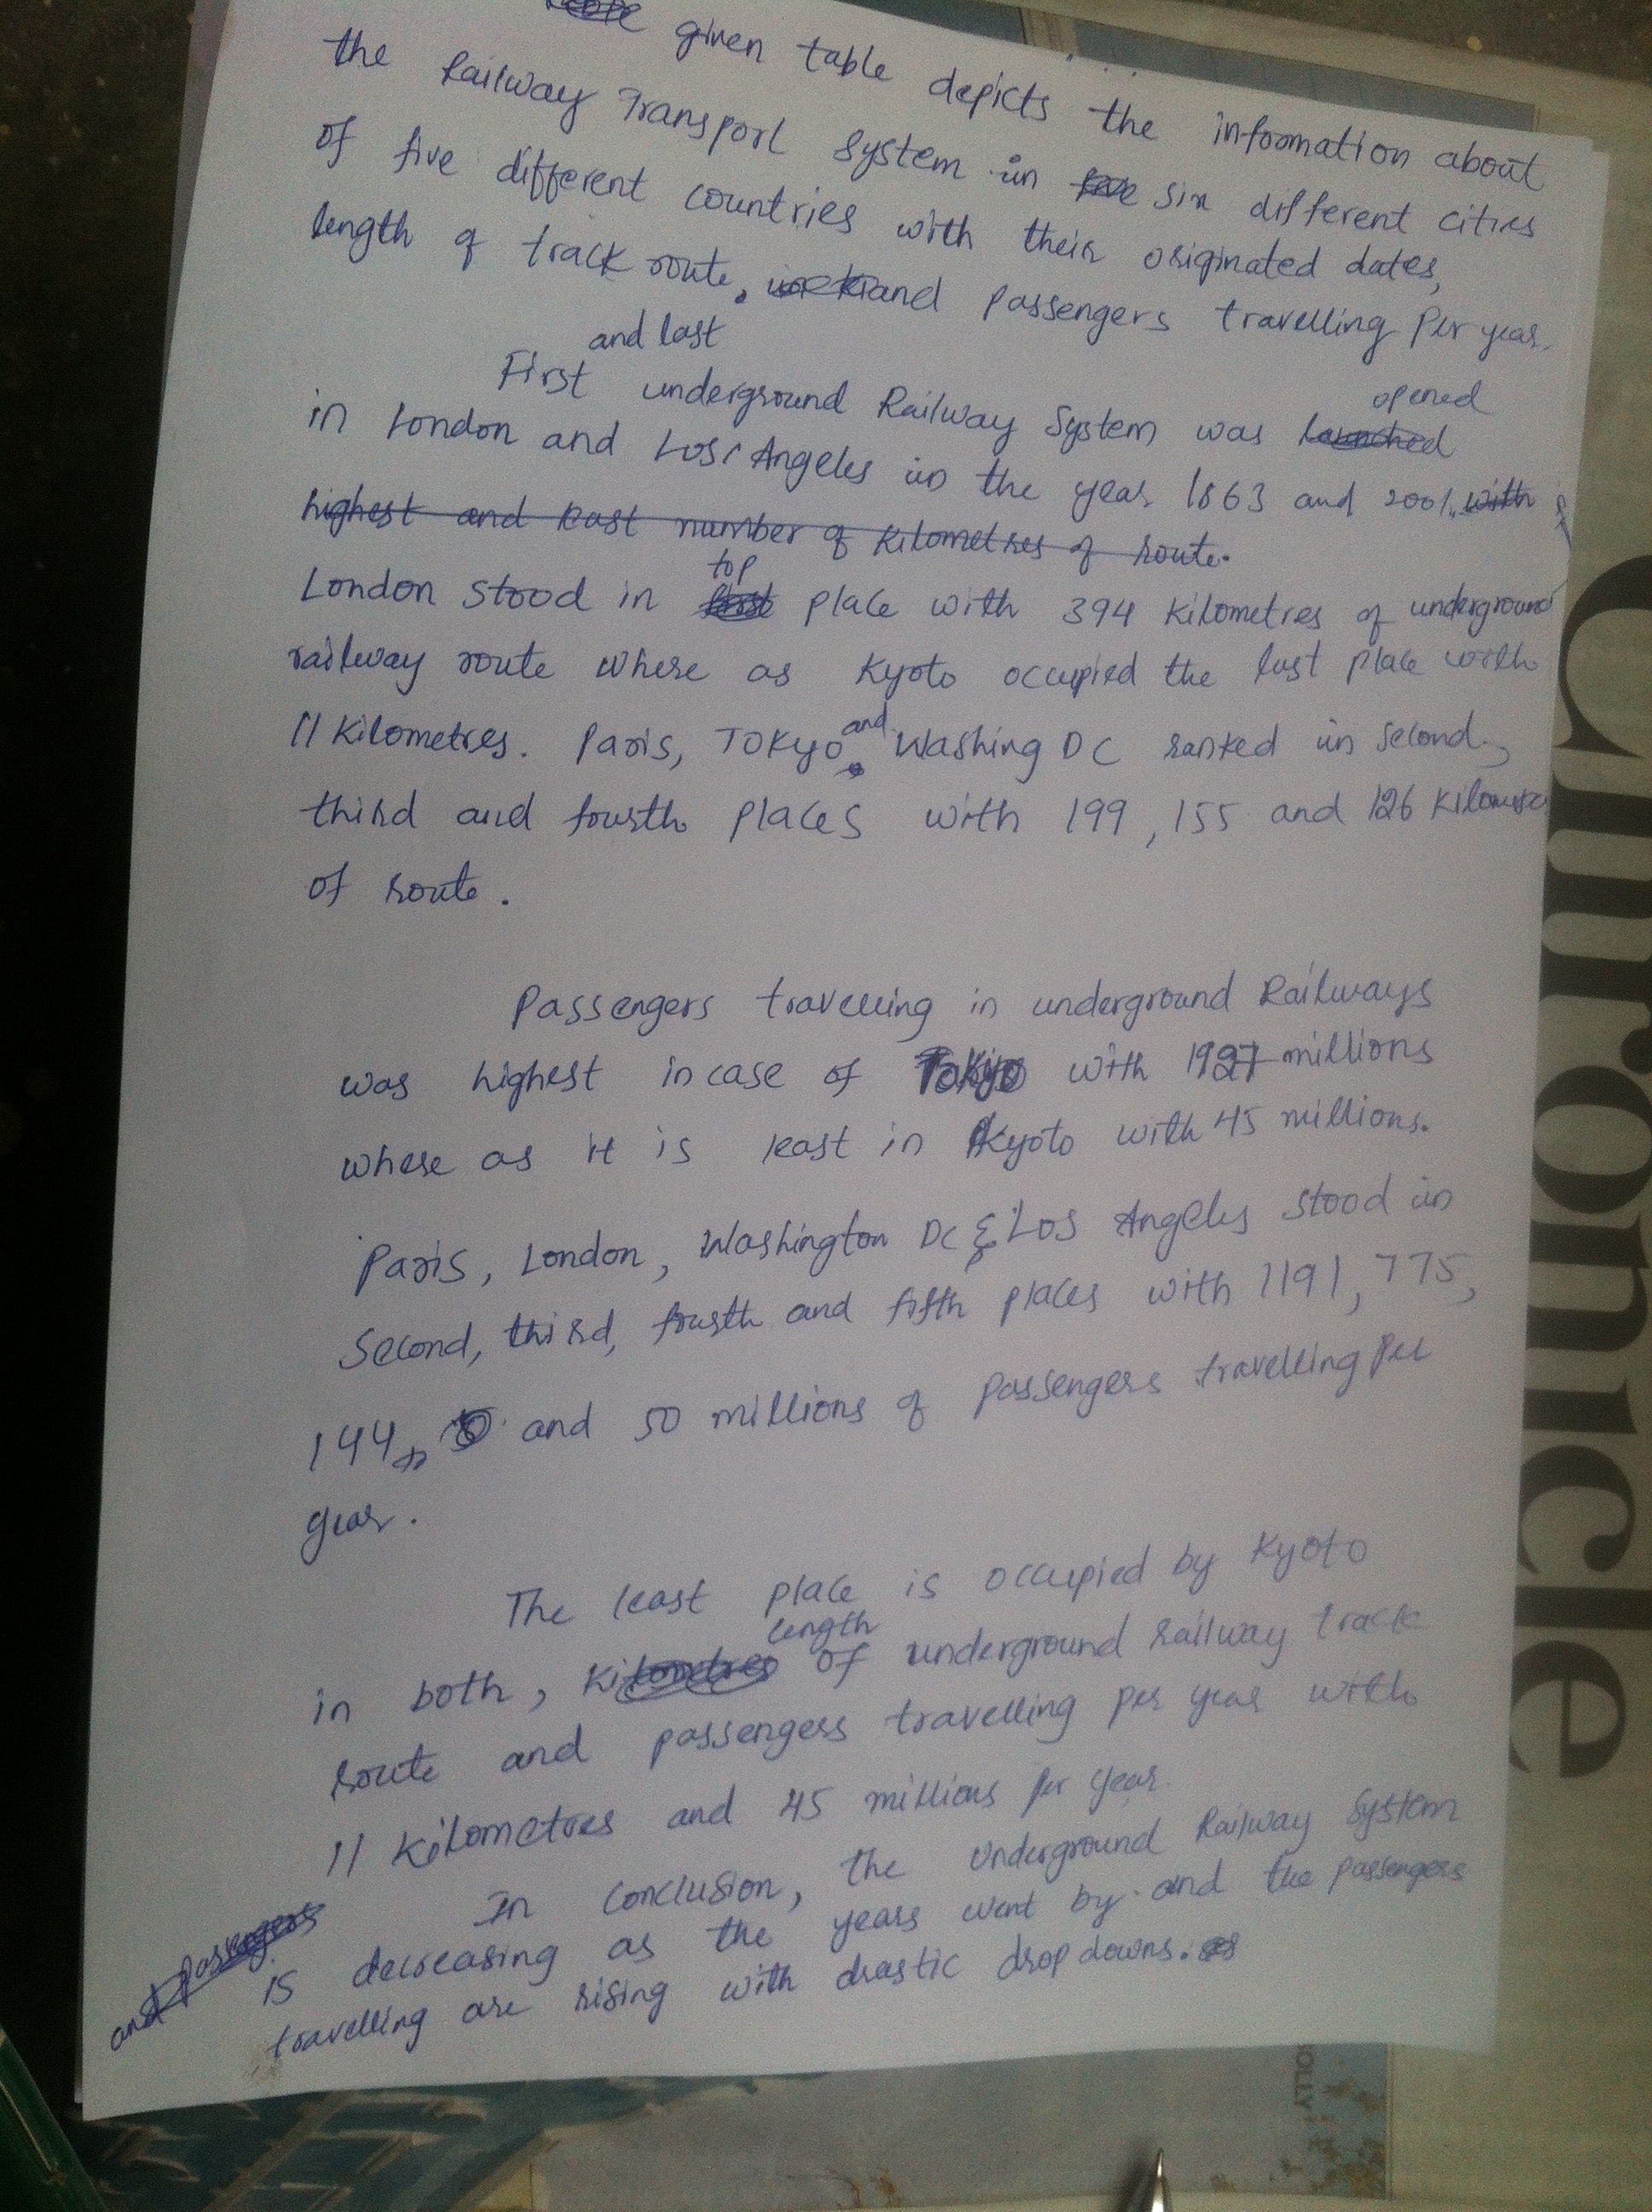 given table depicts the information about
the Railway Transport System in six different cities
of five different countries with their originated dates,
length of track route, and passengers travelling per year.
and last
First underground Railway System was opened
in London and Los Angeles in the year 1863 and 2001.
highest and least number of kilometres of route.
London stood in top place with 394 kilometres of underground
railway route where as Kyoto occupied the last place with
11 kilometres. Paris, Tokyo and Washing DC ranked in second,
third and fourth places with 199, 155 and 126
of route.
Passengers travelling in underground Railways
was highest incase of Tokyo with 1927 millions
where as it is least in Kyoto with 45 millions.
Paris, London, Washington DC & Los Angeles stood in
second, third, fourth and fifth places with 1191, 775,
144, and 50 millions of passengers travelling per
year.
The least place is occupied by Kyoto
in both, length of underground railway track
route and passengers travelling per year with
11 kilometres and 45 millions per year.
In conclusion, the Underground Railway System
is decreasing as the years went by and the passengers
travelling are rising with drastic drop downs.
and passengers
Chronicle
OLLY